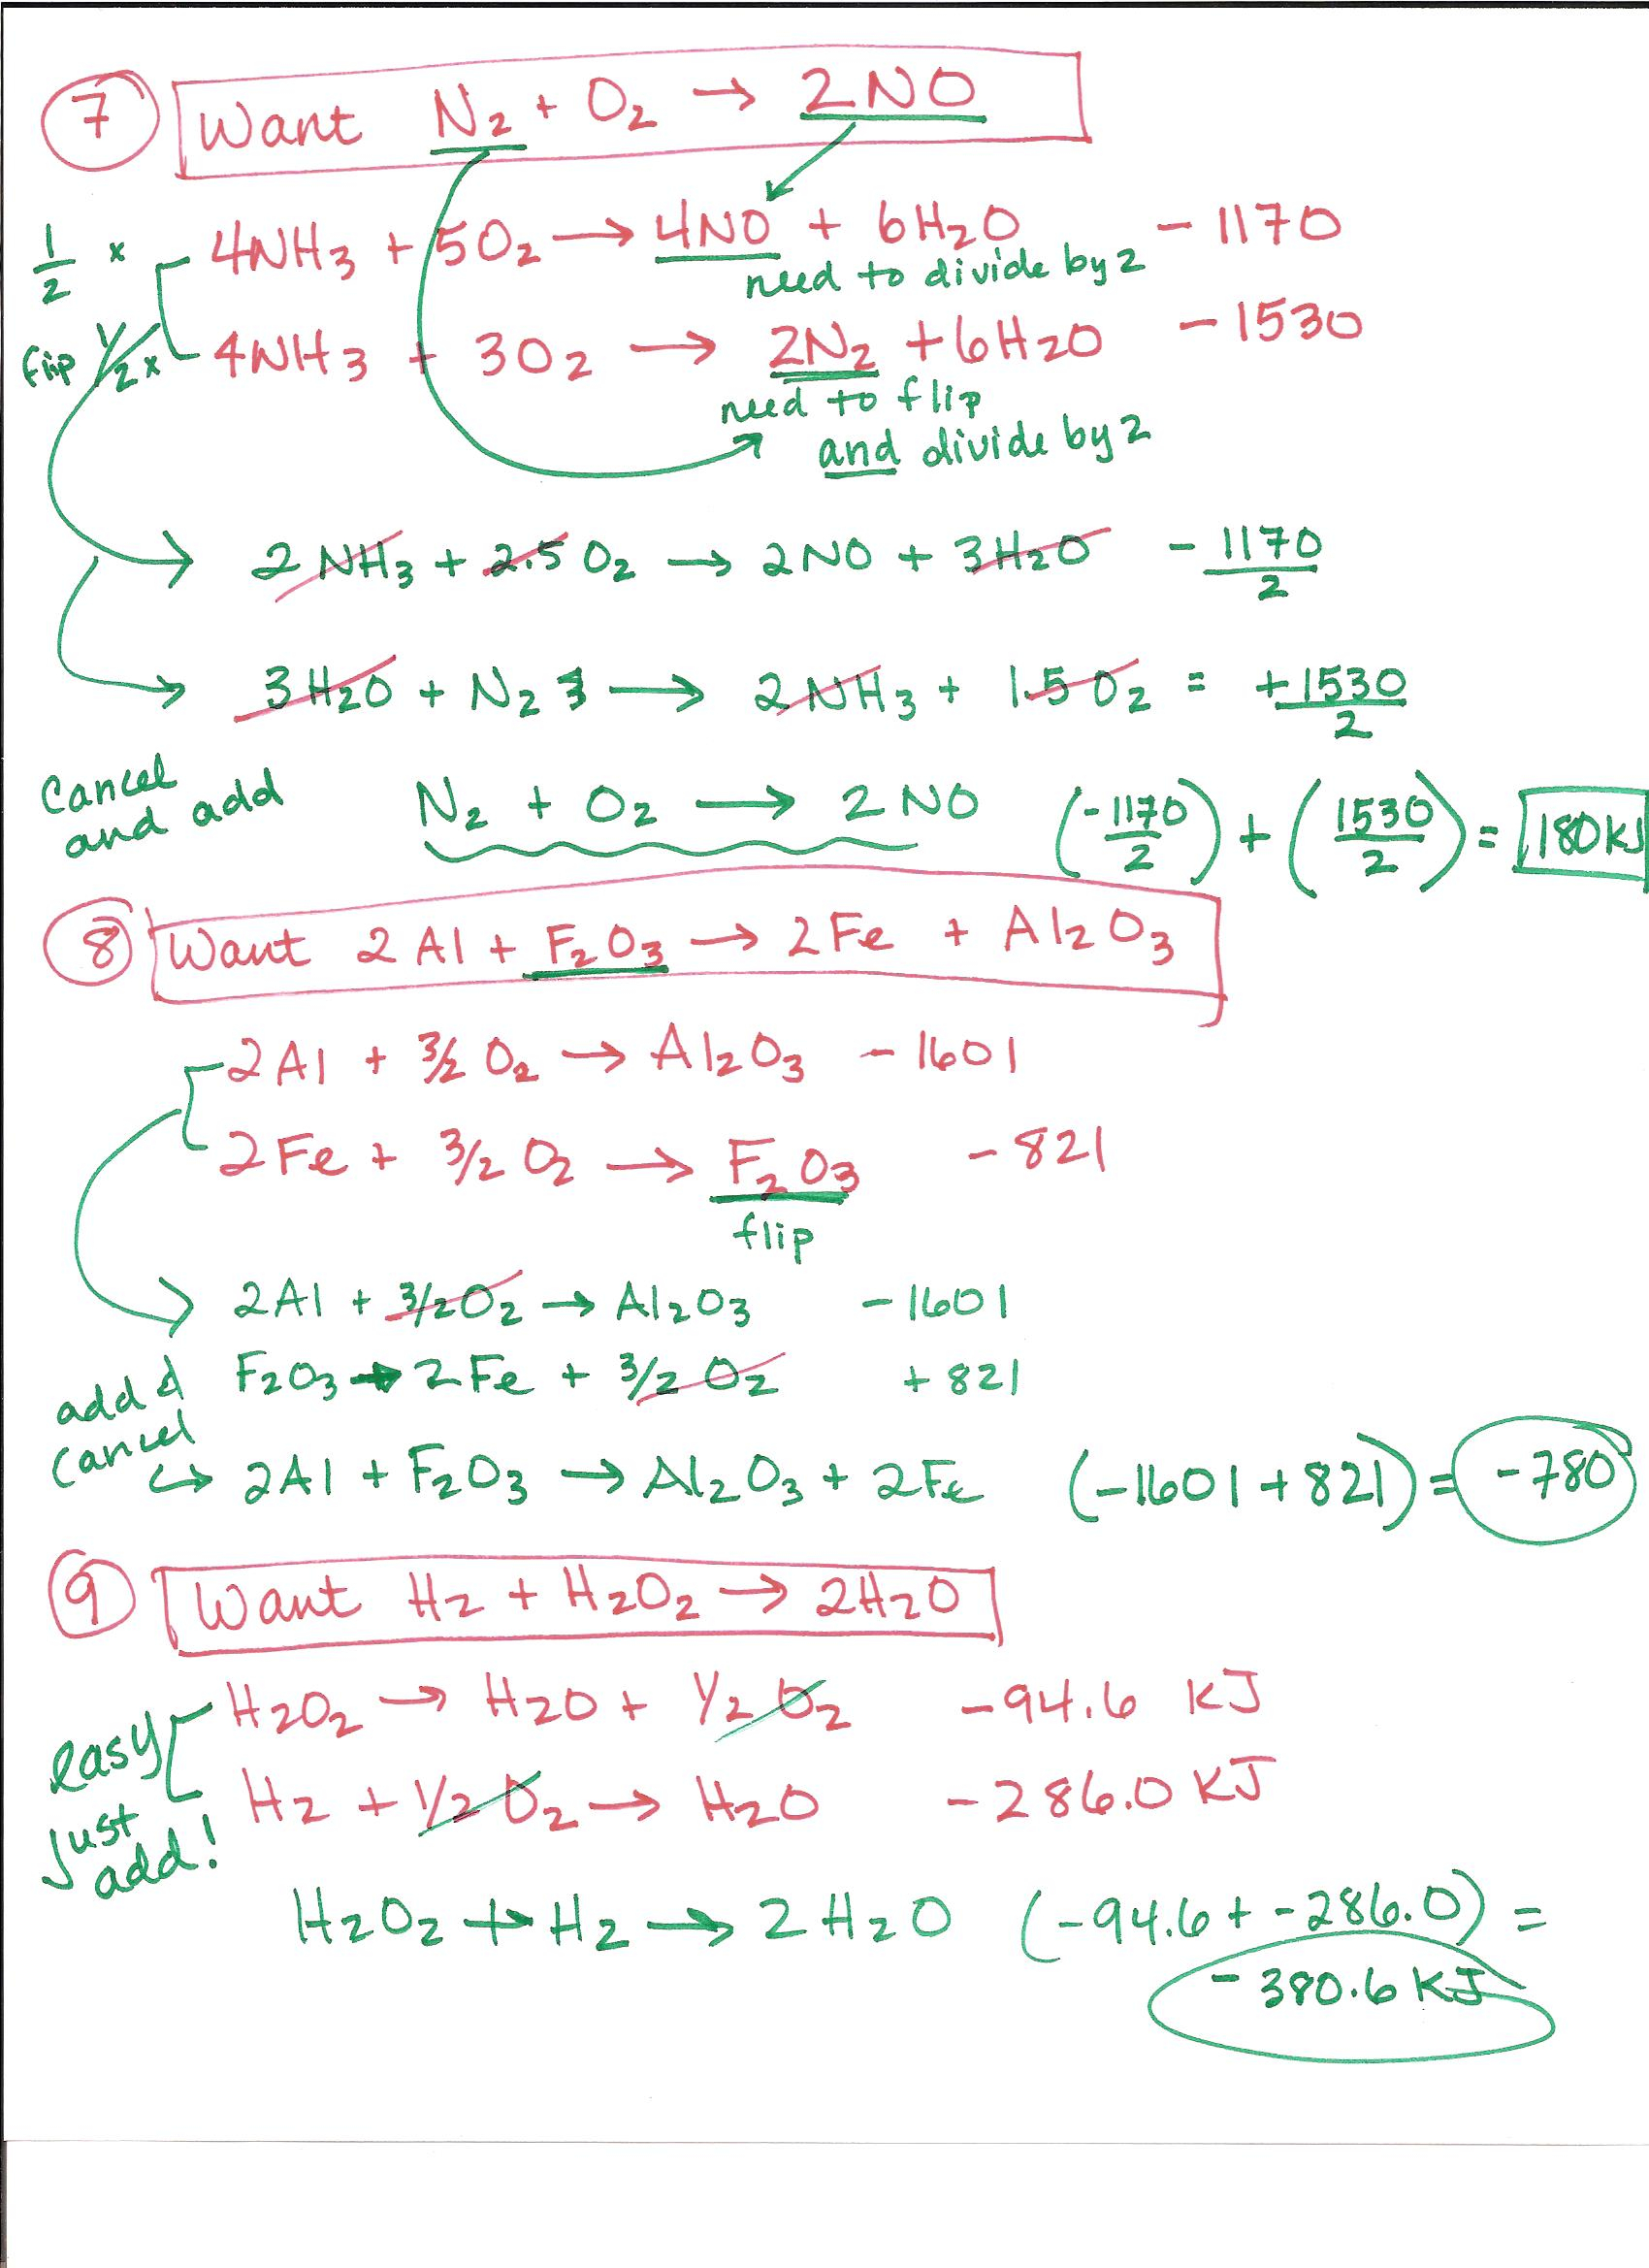 7 Want N2 + O2 → 2NO
1/2 x 4NH3 + 5O2 → 4NO + 6H2O - 1170
need to divide by 2
flip 1/2 x 4NH3 + 3O2 → 2N2 + 6H2O - 1530
need to flip
and divide by 2
2NH3 + 2.5 O2 → 2NO + 3H2O - 1170/2
3H2O + N2 → 2NH3 + 1.5 O2 = +1530/2
Cancel and add N2 + O2 → 2NO (-1170/2) + (1530/2) = 180KJ
8 Want 2Al + F2O3 → 2Fe + Al2O3
2Al + 3/2 O2 → Al2O3 - 1601
2Fe + 3/2 O2 → F2O3 - 821
flip
2Al + 3/2O2 → Al2O3 - 1601
F2O3 → 2Fe + 3/2 O2 + 821
add & cancel ↪ 2Al + F2O3 → Al2O3 + 2Fe (-1601 + 821) = -780
9 Want H2 + H2O2 → 2H2O
H2O2 → H2O + 1/2 O2 -94.6 KJ
H2 + 1/2 O2 → H2O -286.0 KJ
easy just add!
H2O2 + H2 → 2H2O (-94.6 + -286.0) =
- 380.6 KJ